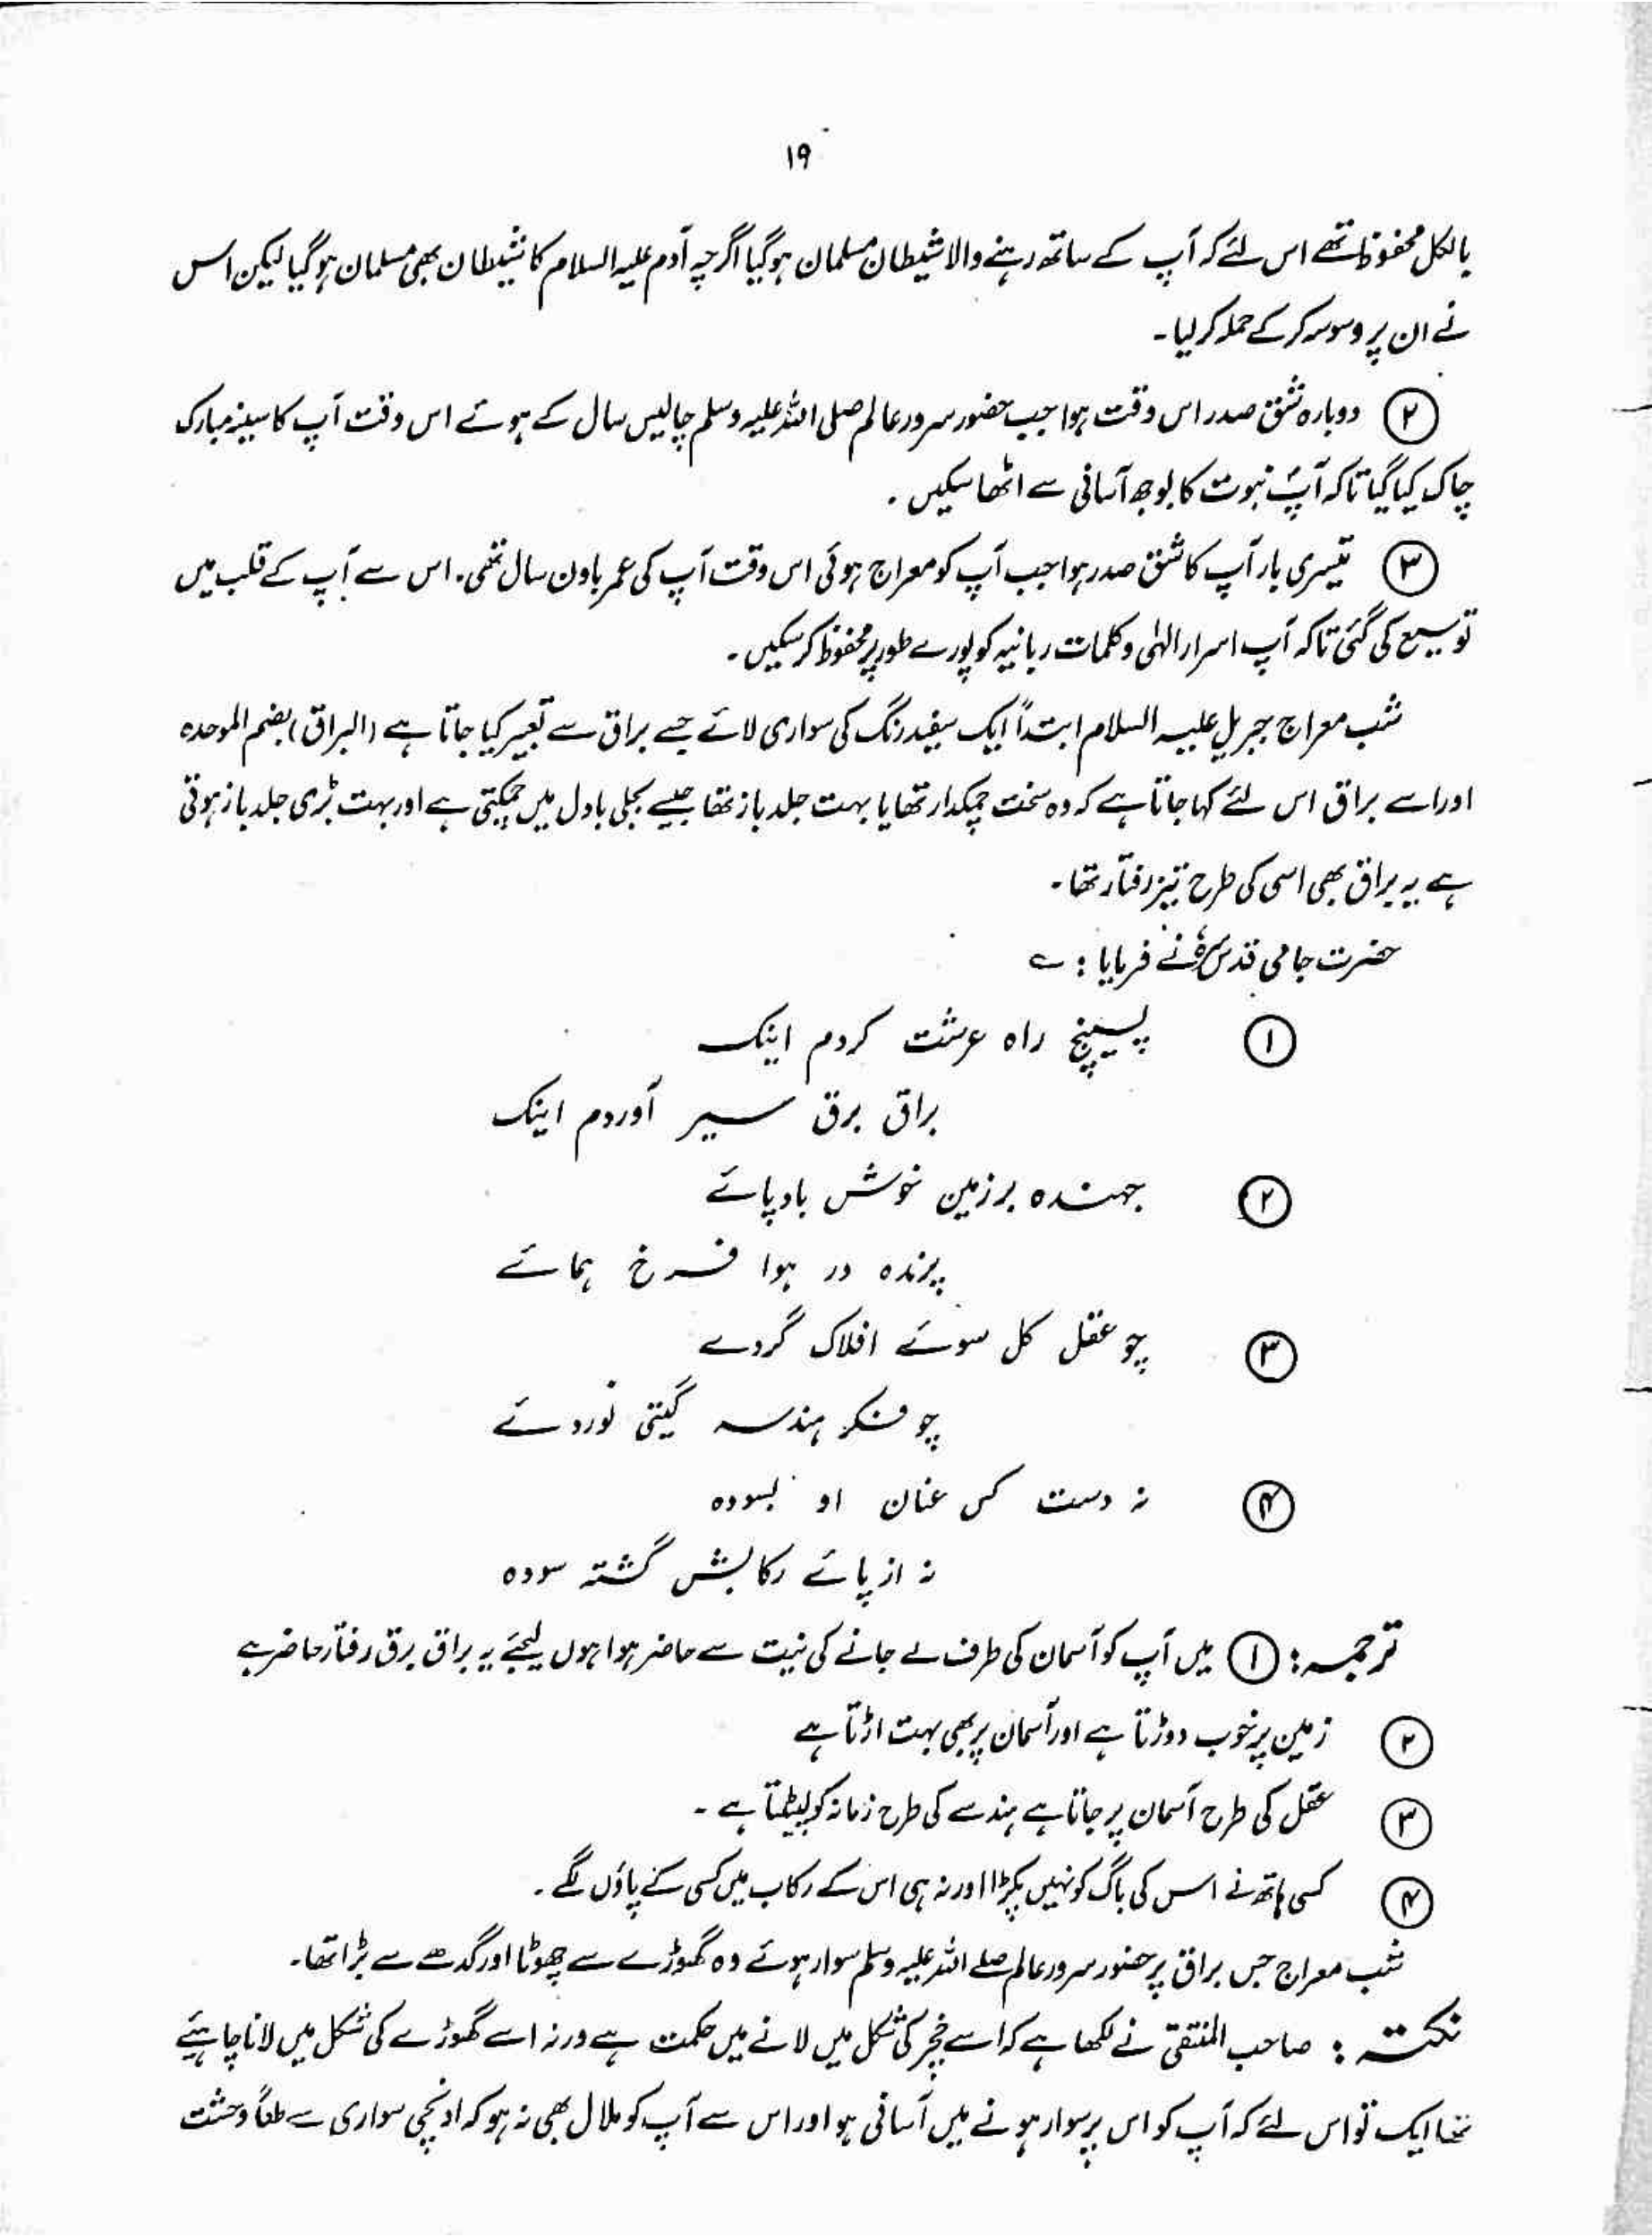 ۱۹
بالکل محفوظ تھے اس لئے کہ آپ کے ساتھ رہنے والا شیطان مسلمان ہوگیا اگرچہ آدم علیہ السلام کا شیطان بھی مسلمان ہوگیا لیکن اس
نے ان پر وسوسہ کرکے حملہ کر لیا۔
۲ دوبارہ شق صدر اس وقت ہوا جب حضور سرور عالم صلی اللہ علیہ وسلم چالیس سال کے ہوئے اس وقت آپ کا سینہ مبارک
چاک کیا گیا تاکہ آپ نبوت کا بوجھ آسانی سے اٹھا سکیں ۔
۳ تیسری بار آپ کا شق صدر ہوا جب آپ کو معراج ہوئی اس وقت آپ کی عمر باون سال تھی۔ اس سے آپ کے قلب میں
توسیع کی گئی تاکہ آپ اسرار الہٰی و کلمات ربانیہ کو پورے طور پر محفوظ کرسکیں۔
شب معراج جبریل علیہ السلام ابتداً ایک سفید رنگ کی سواری لائے جسے براق سے تعبیر کیا جاتا ہے (البراق) بضم الموحدہ
اور اسے براق اس لئے کہا جاتا ہے کہ وہ سخت چمکدار تھا یا بہت جلد باز تھا جیسے بجلی بادل میں چمکتی ہے اور بہت بڑی جلد باز ہوتی
ہے یہ براق بھی اسی کی طرح تیز رفتار تھا۔
حضرت جامی قدس سرہٗ نے فرمایا : ؎
۱ پسیچ راہ عرشت کردم اینک
براق برق سیر آوردم اینک
۲ جہندہ بر زمین خوش بادپائے
پرندہ در ہوا فرخ ہمائے
۳ چو عقل کل سوئے افلاک گردے
چو فکر ہندسہ گیتی نوردے
۴ نہ دست کس عنان او بسودہ
نہ از پائے رکابش گشتہ سودہ
ترجمہ : ۱ میں آپ کو آسمان کی طرف لے جانے کی نیت سے حاضر ہوا ہوں لیجئے یہ براق برق رفتار حاضر ہے
۲ زمین پر خوب دوڑتا ہے اور آسمان پر بھی بہت اڑتا ہے
۳ عقل کی طرح آسمان پر جاتا ہے ہندسے کی طرح زمانہ کو لپیٹتا ہے ۔
۴ کسی ہاتھ نے اس کی باگ کو نہیں پکڑا اور نہ ہی اس کے رکاب میں کسی کے پاؤں لگے ۔
شب معراج جس براق پر حضور سرور عالم صلے اللہ علیہ وسلم سوار ہوئے وہ گھوڑے سے چھوٹا اور گدھے سے بڑا تھا۔
نکتہ : صاحب المنتقیٰ نے لکھا ہے کہ اسے خچر کی شکل میں لانے میں حکمت ہے ورنہ اسے گھوڑے کی شکل میں لانا چاہیئے
تھا ایک تو اس لئے کہ آپ کو اس پر سوار ہونے میں آسانی ہو اور اس سے آپ کو ملال بھی نہ ہو کہ اونچی سواری سے طبعاً وحشت